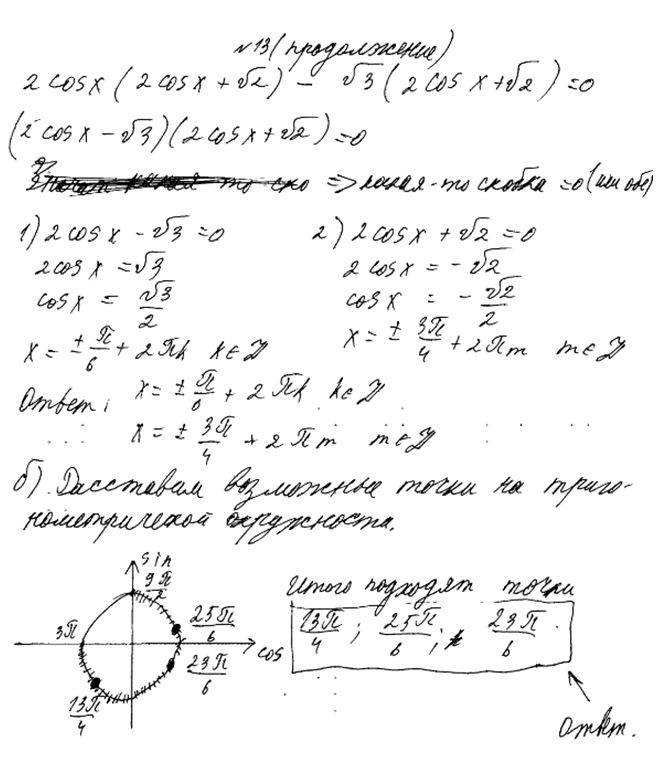 №13 (продолжение)
2cosx(2cosx+√2) − √3(2cosx+√2)=0
(2cosx−√3)(2cosx+√2)=0
=> какая-то скобка =0 (или обе)
1) 2cosx−√3=0
2cosx=√3
cosx = √3/2
x=±π/6+2πk k∈Z
2) 2cosx+√2=0
2cosx=−√2
cosx = −√2/2
x=± 3π/4+2πm m∈Z
Ответ: x=±π/6+2πk k∈Z
x=±3π/4+2πm m∈Z
б). Расставим возможные точки на триго-
нометрической окружности.
sin
9π/2
25π/6
3π
cos
23π/6
13π/4
Итого подходят точки
13π/4; 25π/6; 23π/6.
Ответ.